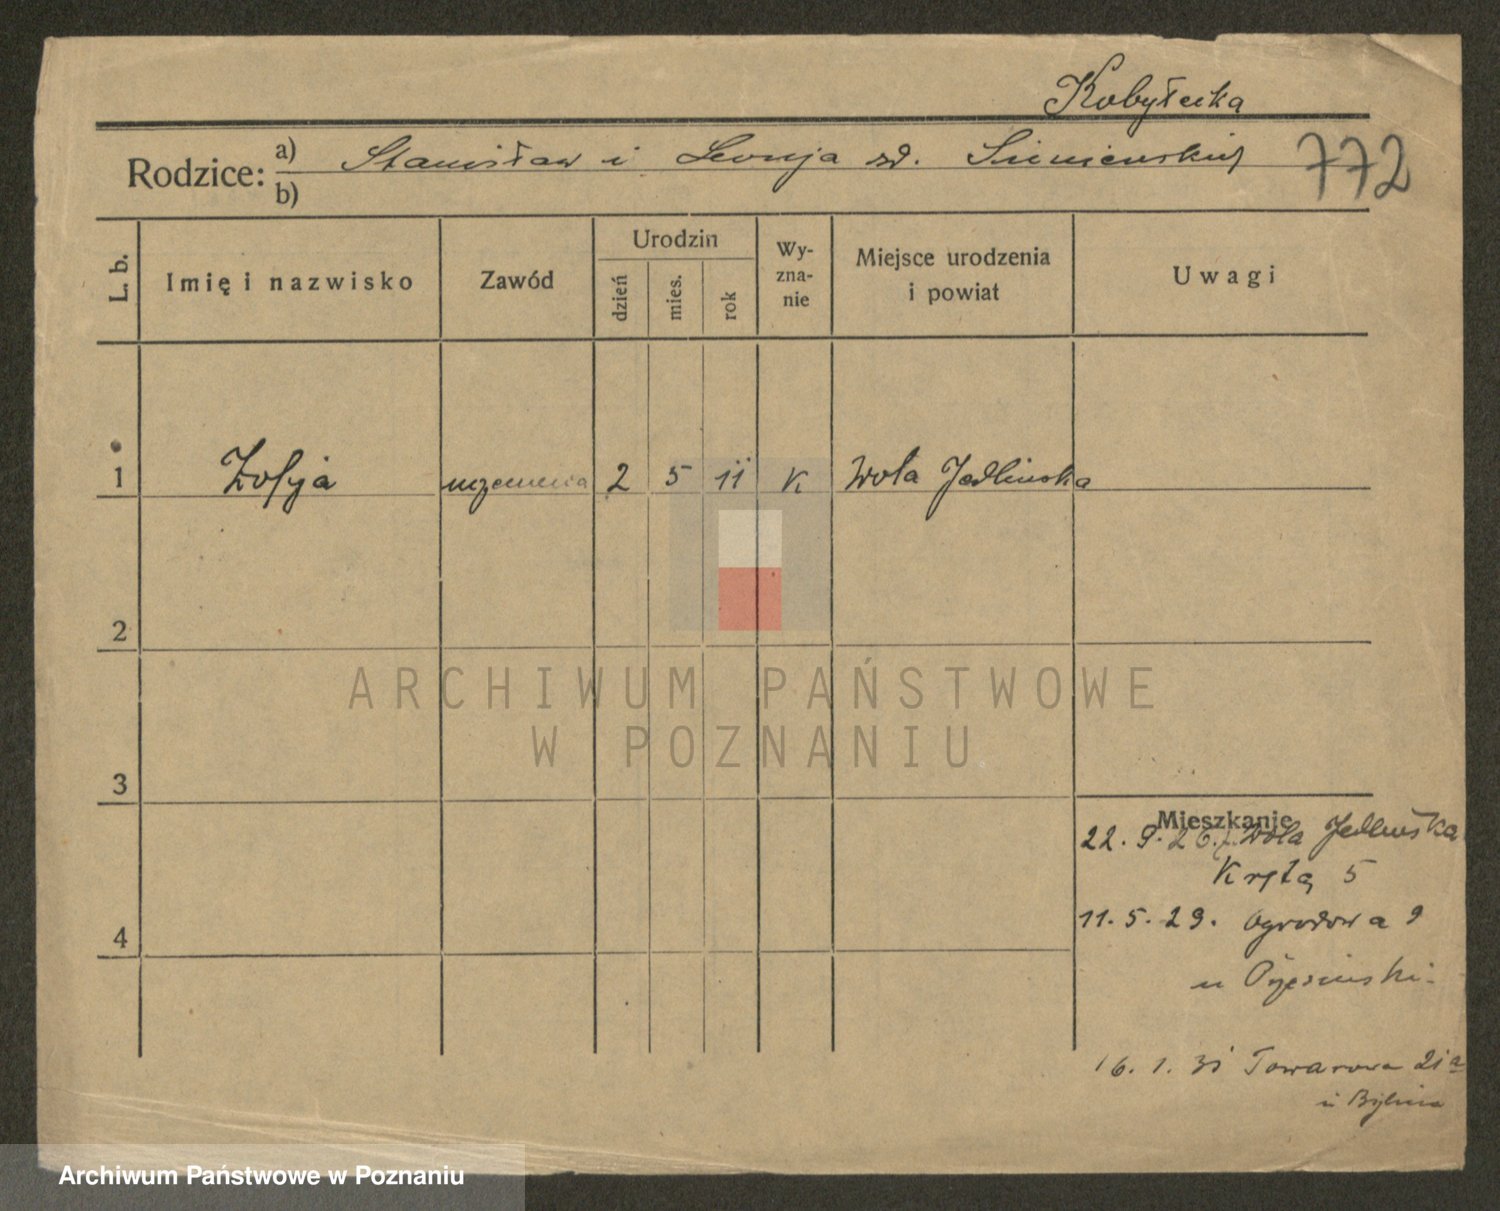 Kobyłecka
Rodzice: a) Stanisław i Leonja zd.
b)
772
L. b.
Imię i nazwisko
Zawód
Urodzin
dzień
mies.
rok
Wy-
zna-
nie
Miejsce urodzenia
i powiat
Uwagi
1 Zofja uczennica 2 5 11 K Wola Jedlinska
2
3
4
Mieszkanie
22. 9. 26. z Wola Jedlińska
Kręta 5
11. 5. 29. Ogrodowa 9
u
16. 1. 31 Towarowa 21a
u
ARCHIWUM PAŃSTWOWE
W POZNANIU
Archiwum Państwowe w Poznaniu